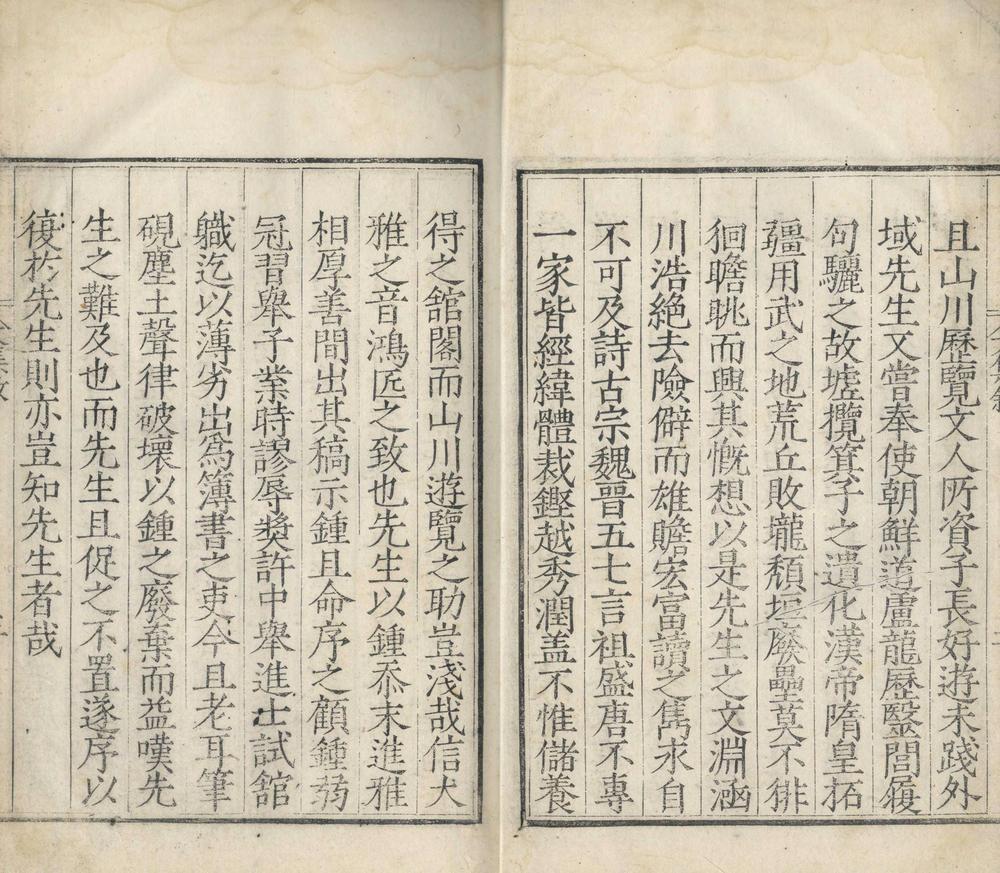 且山川歷覽文人所資子長好遊未踐外
域先生又嘗奉使朝鮮道盧龍歷毉閭履
句驪之故墟攬箕子之遺化漢帝隋皇拓
疆用武之地荒丘敗壠頹垣廢壘莫不徘
徊瞻眺而興其慨想以是先生之文淵涵
川浩絶去險僻而雄贍宏富讀之雋永自
不可及詩古宗魏晋五七言祖盛唐不專
一家皆經緯體裁鏗越秀潤盖不惟儲養
得之舘閣而山川遊覽之助豈淺哉信大
雅之音鴻匠之致也先生以鍾忝末進雅
相厚善間出其稿示鍾且命序之顧鍾弱
冠習舉子業時謬辱奬許中舉進士試舘
職迄以薄劣出爲簿書之吏今且老耳筆
硯塵土聲律破壞以鍾之廢棄而益嘆先
生之難及也而先生且促之不置遂序以
復於先生則亦豈知先生者哉